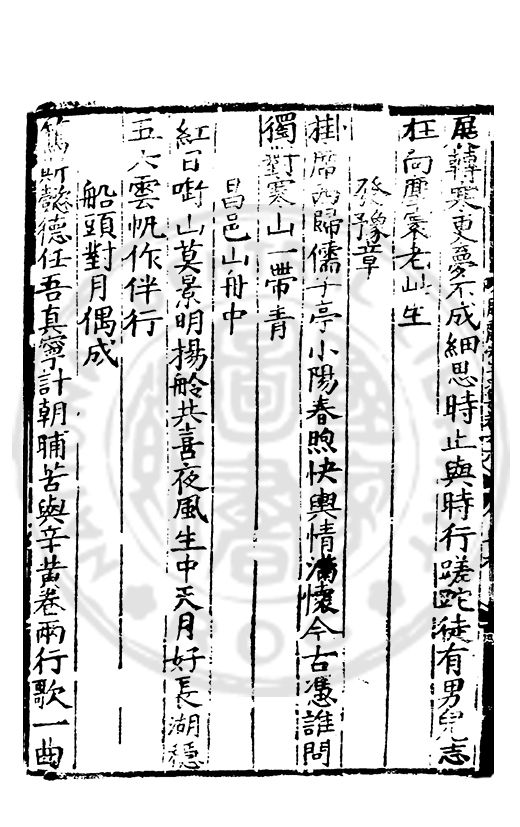 展轉寒更夢不成細思時止與時行蹉跎徒有男兒志
枉向塵寰老此生
發豫章
掛席西歸儒子亭小陽春煦快輿情滿懷今古憑誰問
獨對寒山一帶青
昌邑山舟中
紅日啣山莫景明揚舲共喜夜風生中天月好長湖穩
五六雲帆作伴行
船頭對月偶成
斯懿德任吾真寧計朝晡苦與辛黃卷兩行歌一曲